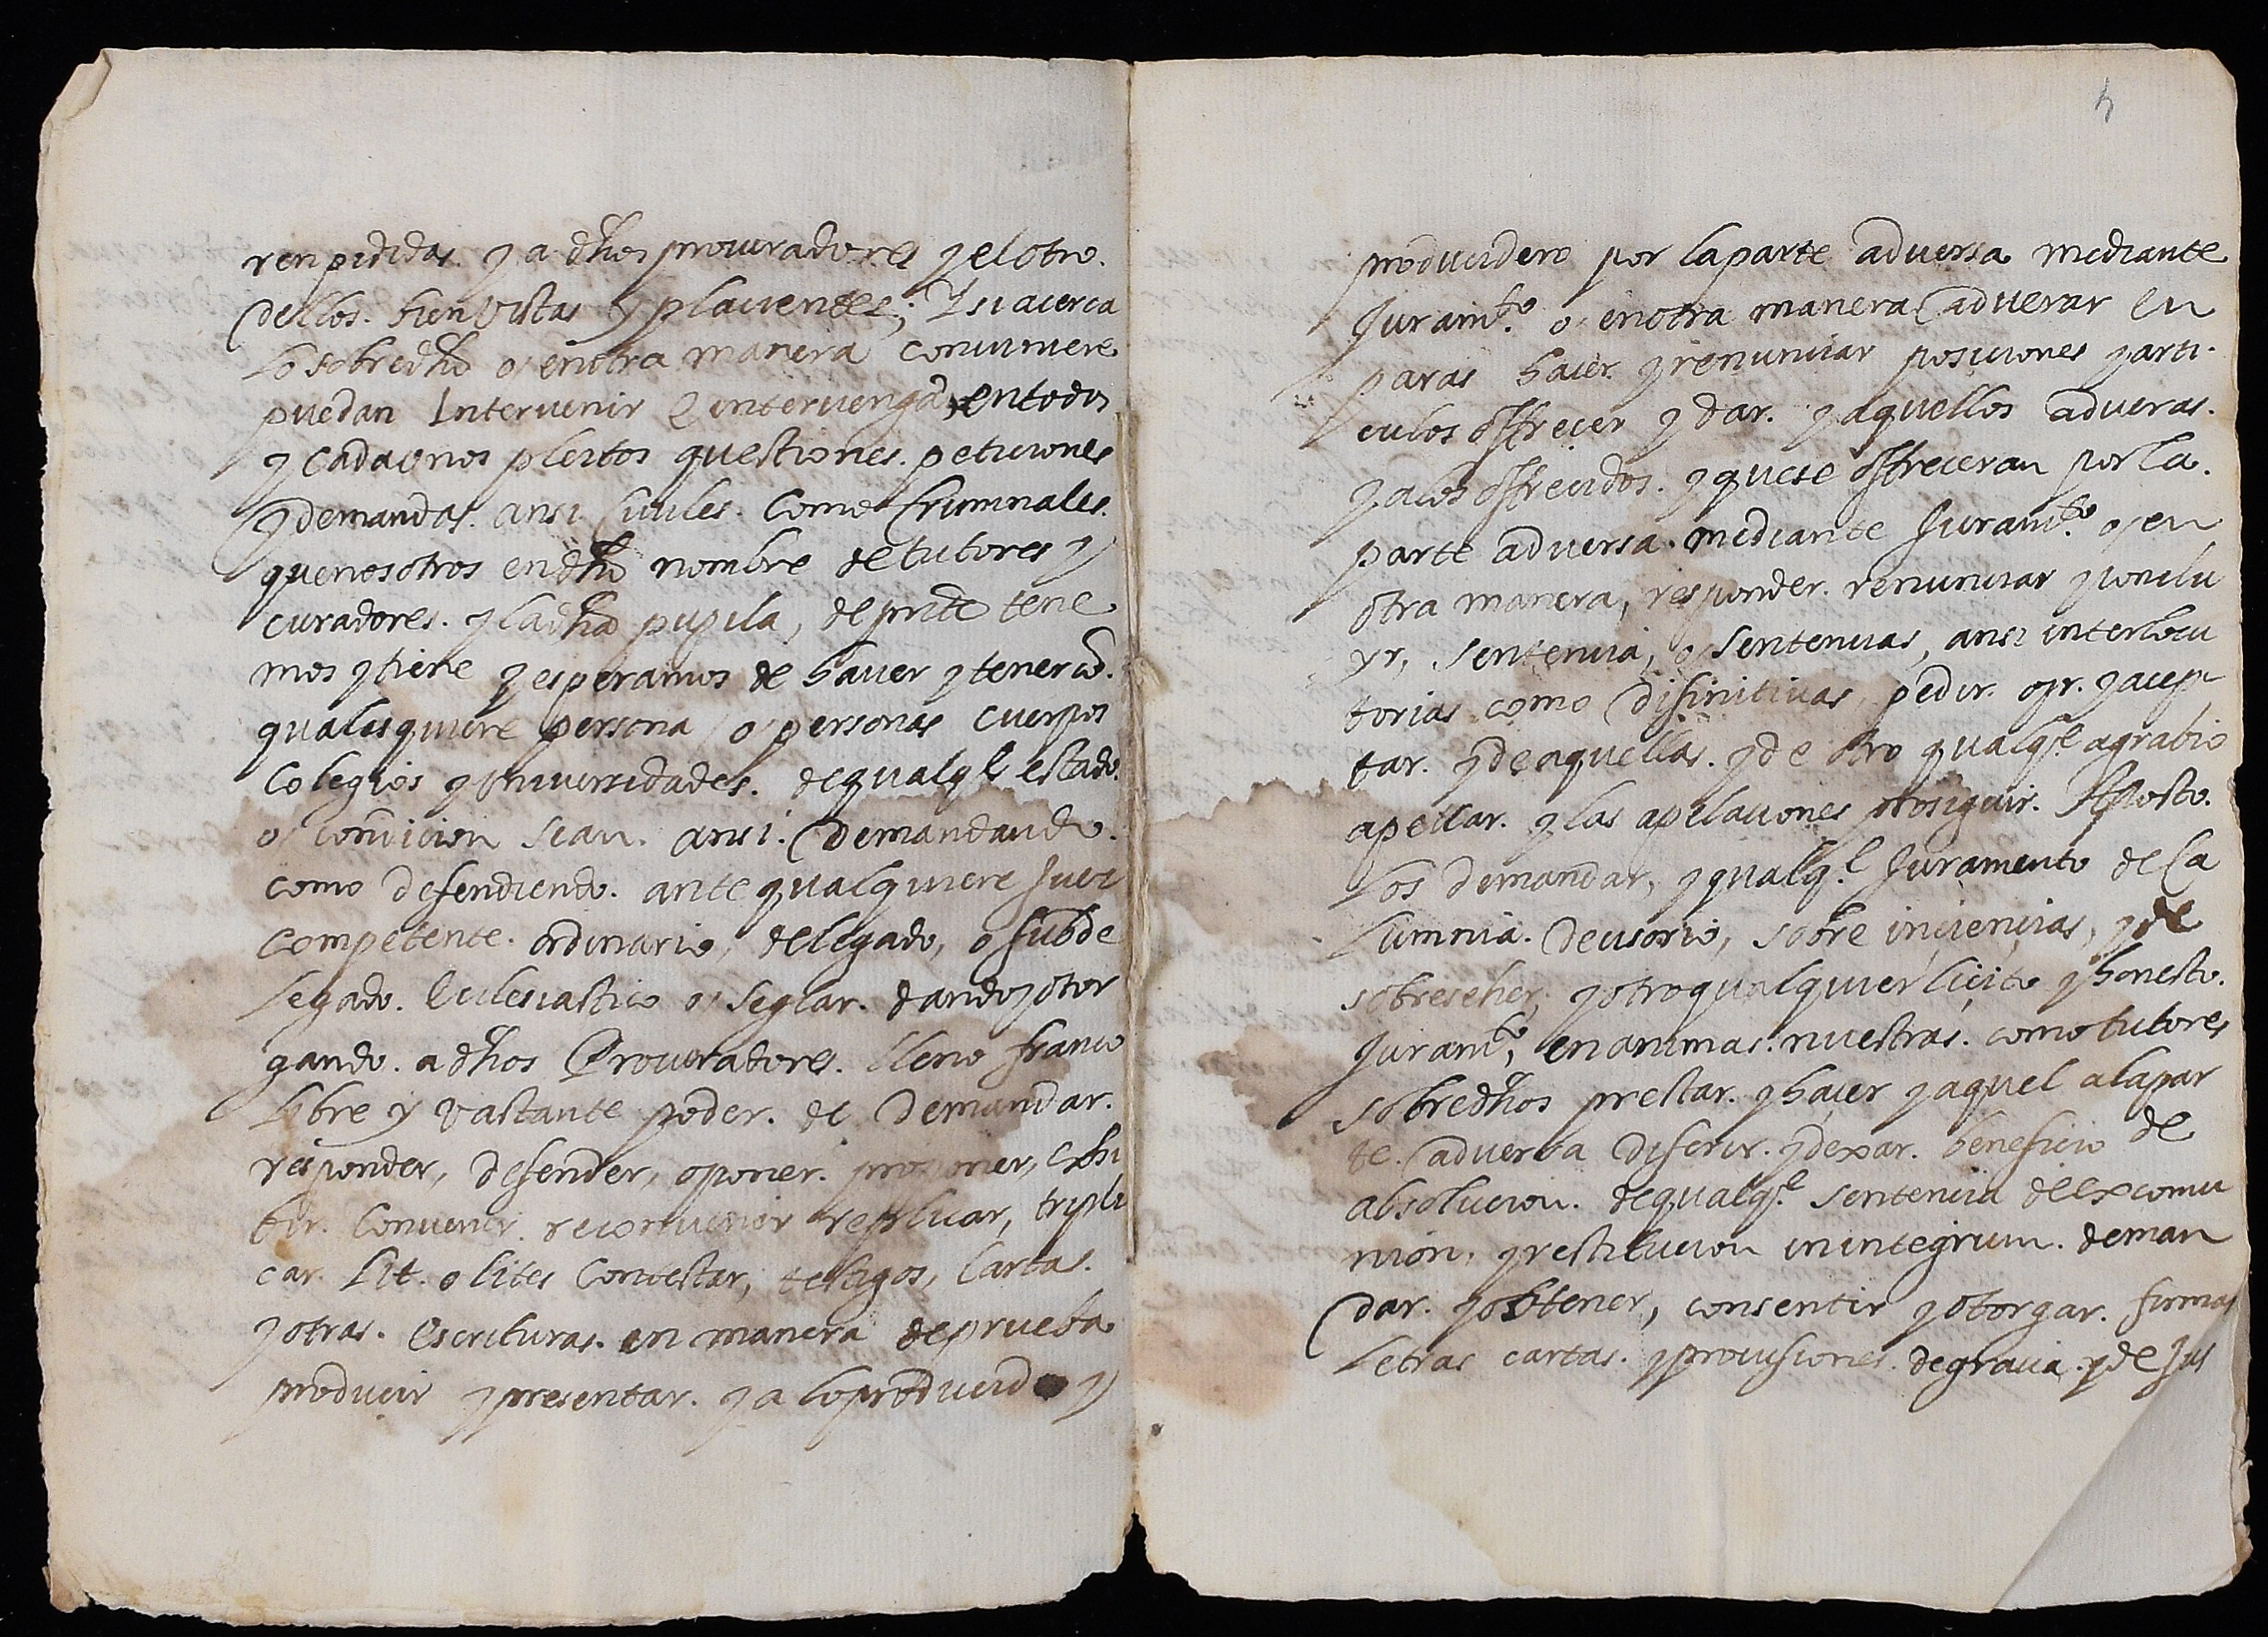 ren pididas. y a dhos procuradores y el otro.
dellos. bien vistas y placientes; Y si acerca
lo sobredho o, en otra manera conviniere
puedan Intervenir e intervengã, en todos
y cada unos pleitos questiones. peticiones
y demandas. ansi Ciuiles. como Criminales.
que nosotros en dho nombre de tutores y
curadores. y la dha pupila, de pnte tene
mos y tiene y esperamos de haver y tener cõ.
qualesquiere persona, o, personas cuerpos
Colegios y Universidades. de qualqe estado.
o, condicion sean. ansi. demandando.
como defendiendo. ante qualquiere Juez
competente. ordinario, delegado, o subde
legado. Eclesiastico o, seglar. dando y otor
gando. a dhos Procuradores. lleno franco
libre y vastante poder. de demandar.
responder, defender, oponer. proponer, exhi
bir. Convenir. reconvenir replicar, tripli
car. Lit. o lites Contestar, testigos, Cartas.
y otras. escrituras. en manera de prueba
producir y presentar. y a lo producido y
4
producidero por la parte adversa mediante
Juramto. o, en otra manera adverar en
paras hacer. y renunciar posiciones y arti.
culos offrecer y dar. y aquellos adveras.
y a los offrecidos. y que se offreceran por la.
parte adversa. mediante Juramto. o, en
otra manera, responder. renunciar y conclu
yr, sentencia, o, sentencias, ansi interlocu
torias como difinitivas, pedir. oyr. y acep
tar. y de aquellas. y de otro qualqe. agrabio
apellar. y las apelaciones prosiguir. Apposto.
los demandar, y qualqe. Juramento de Ca
lumnia. decisorio, sobre inciencias, y de
sobreseher, y otro qualquier licito y honesto.
Juramto, en animas. nuestras. como tutores
sobredhos prestar. y hacer y aquel a la par
te. adversa diferir. y dexar. beneficio de
absolucion. de qualqe. sentencia de excomu
nion, y restitucion in integrum. deman
dar. y obtener, consentir y otorgar. firmas
letras cartas. y provisiones. de gracia. y de Jus